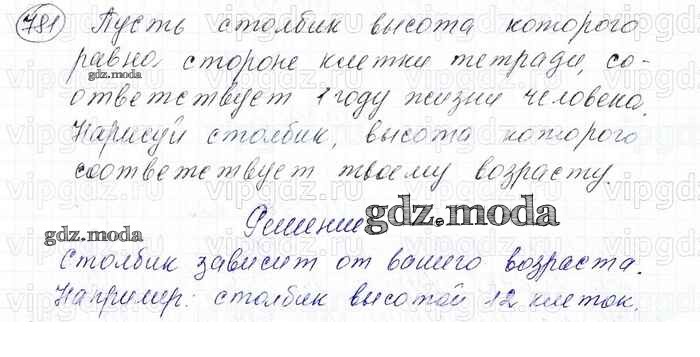 781 Пусть столбик высота которого
равна стороне клетки тетради, со-
gdz.moscow
ответствует 1 году жизни человека.
Нарисуй столбик, высота которого
соответствует твоему возрасту.
Решение
gdz.moscow
gdz.moscow
Столбик зависит от вашего возраста.
Например: столбик высотой 12 клеток.